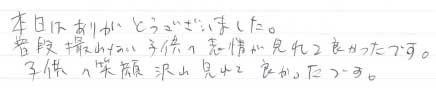 本日はありがとうございました。
普段撮れない子供の表情が見れて良かったです。
子供の笑顔沢山見れて良かったです。